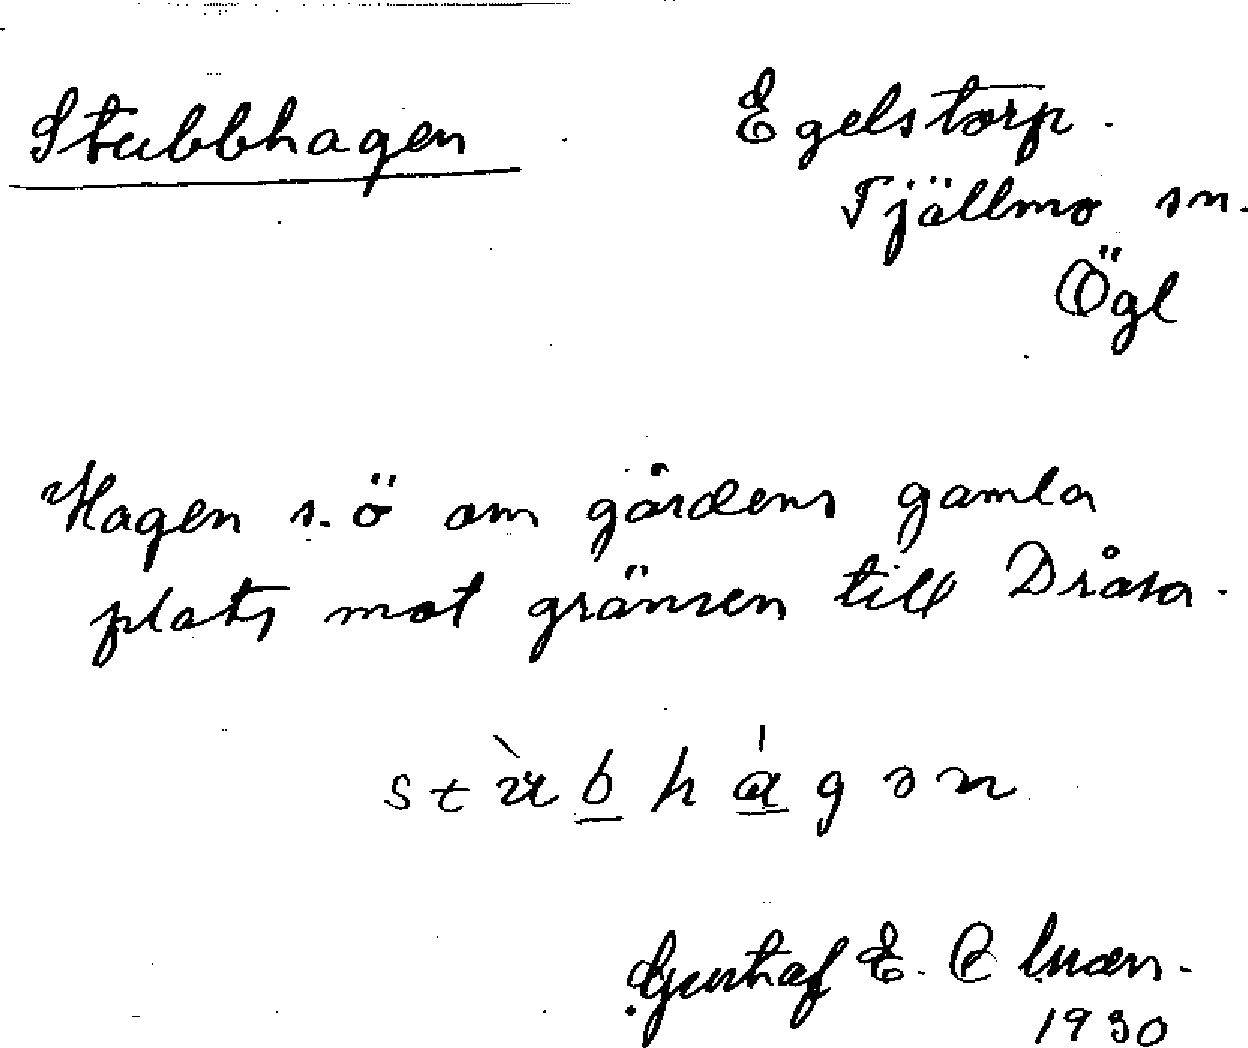 Stubbhagen
Egelstorp.
Tjällmo sn.
Ögl
Hagen s.ö om gårdens gamla
plats mot gränsen till Dråsa.
stùbhágən
Gustaf E.
1930